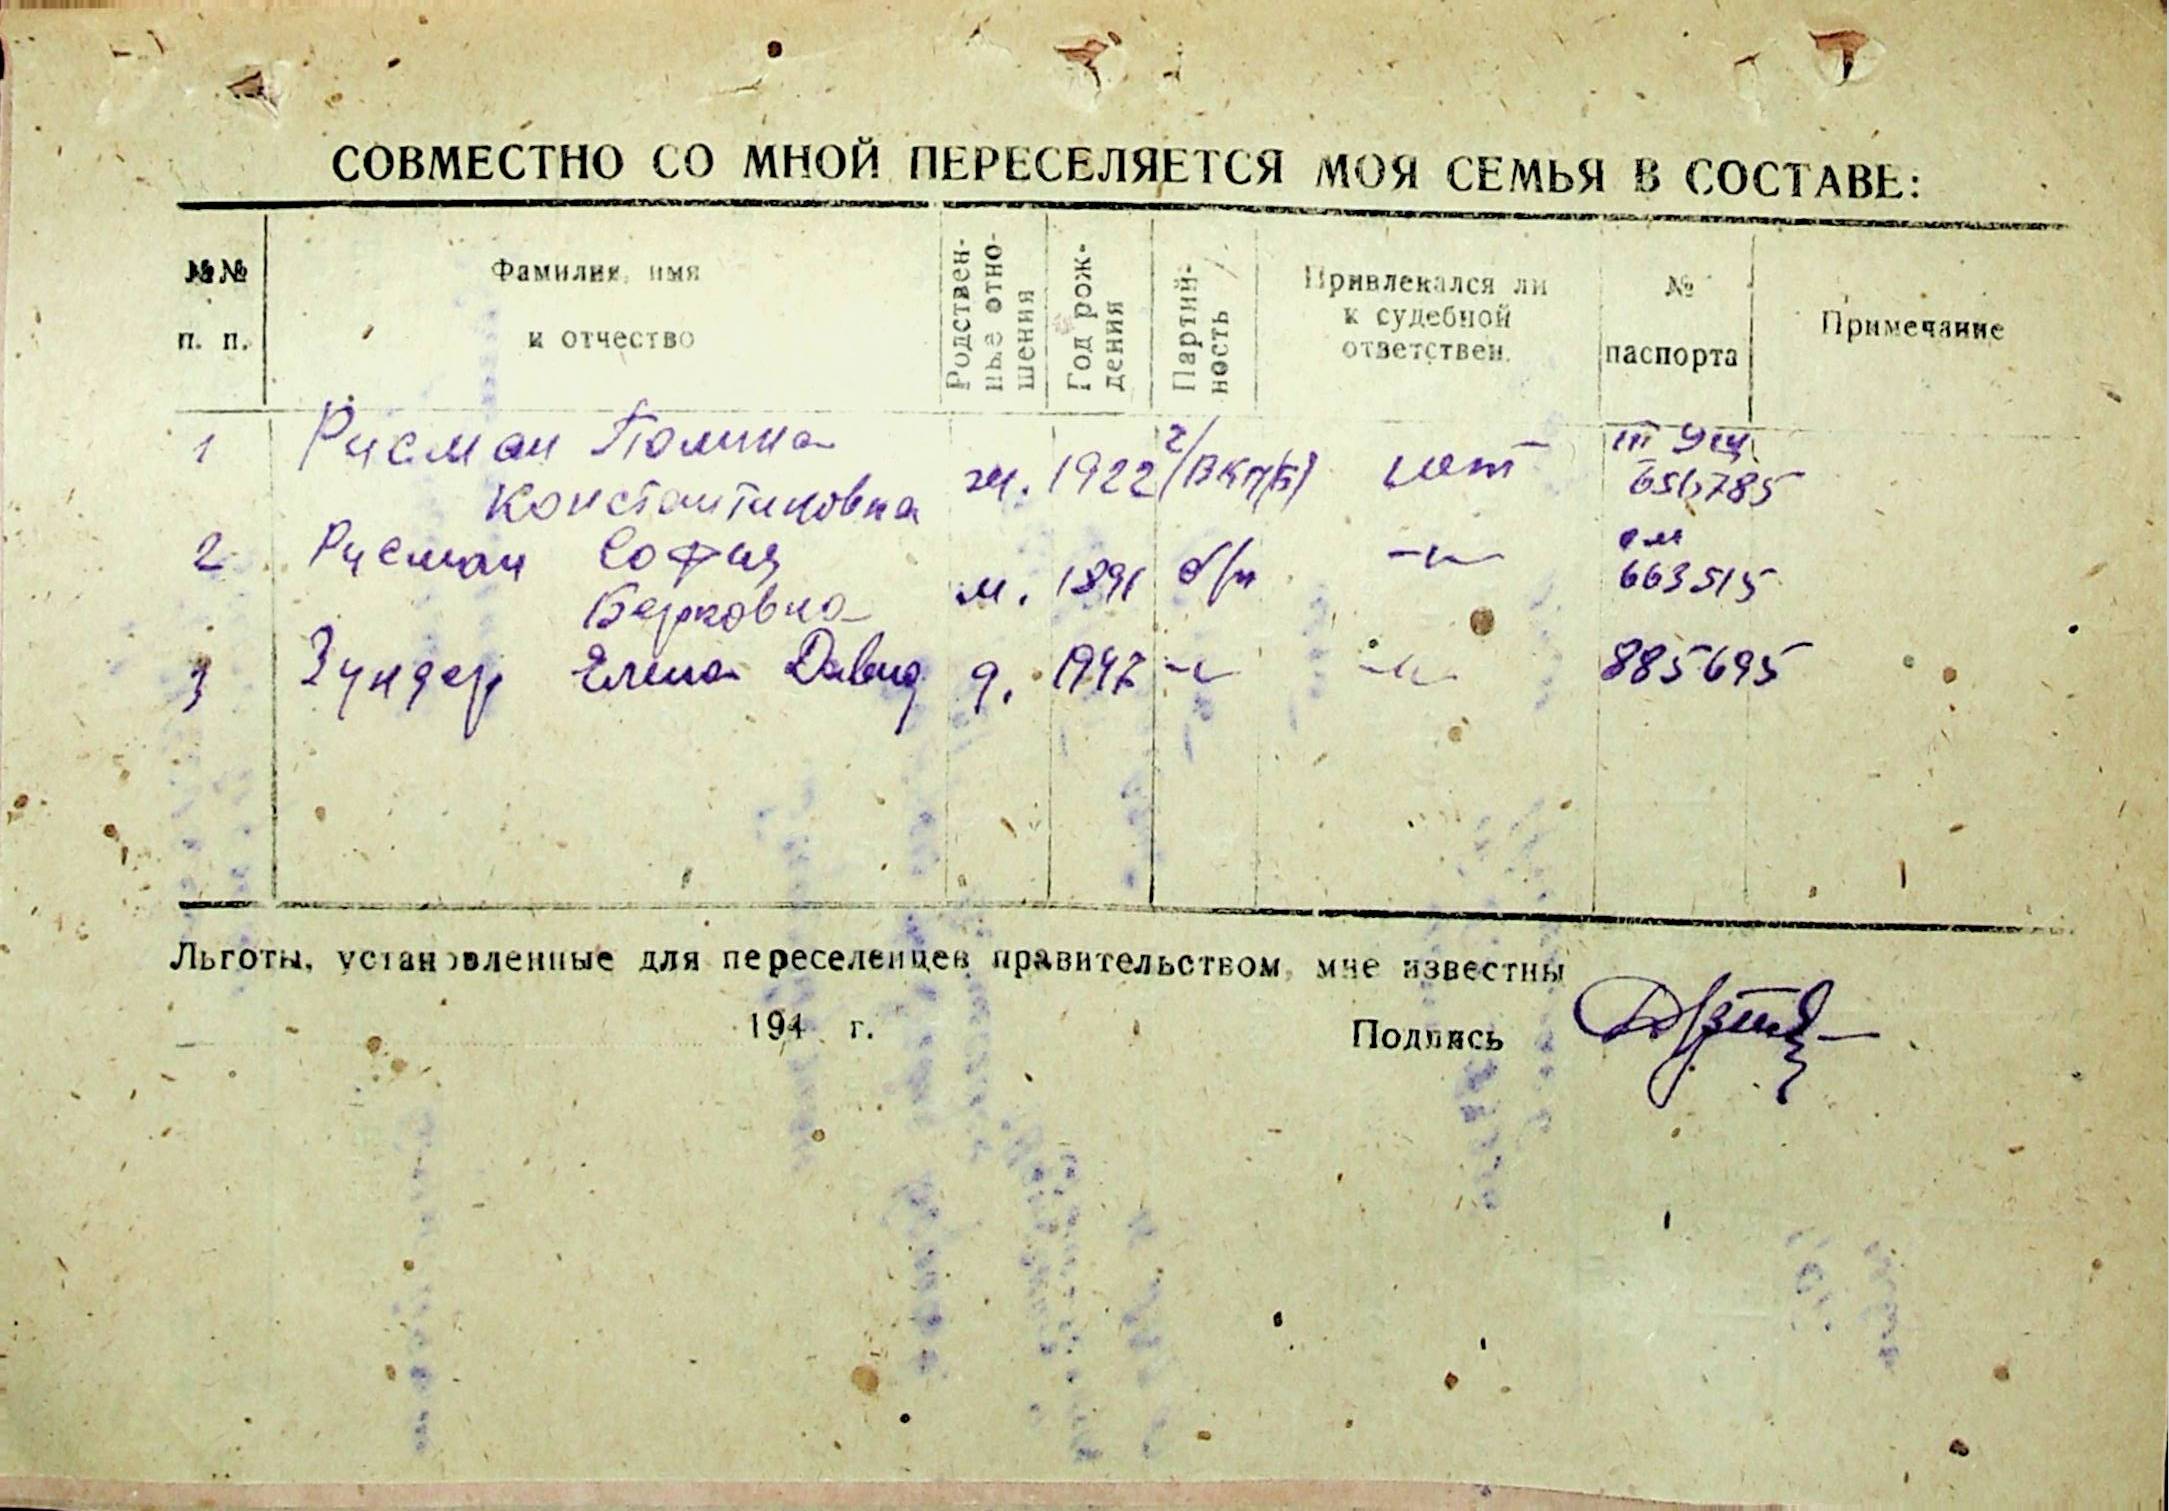 СОВМЕСТНО СО МНОЙ ПЕРЕСЕЛЯЕТСЯ МОЯ СЕМЬЯ В СОСТАВЕ:
№№ п. п.
Фамилия, имя
и отчество
Родствен-
ные отно-
шения
Год рож-
дения
Партий-
ность
Привлекался ли
к судебной
ответствен.
№
паспорта
Примечание
1 Рисман Полина
Константиновна ж. 1922 ч/ВКП(б) нет III УЩ
656785
2 Рисман София
Берковна м. 1891 б/п -"-
663515
3 Зундер Елена Давид д. 1947 -"- -"- 885695
Льготы, установленные для переселенцев правительством, мне известны
194 г.
Подпись